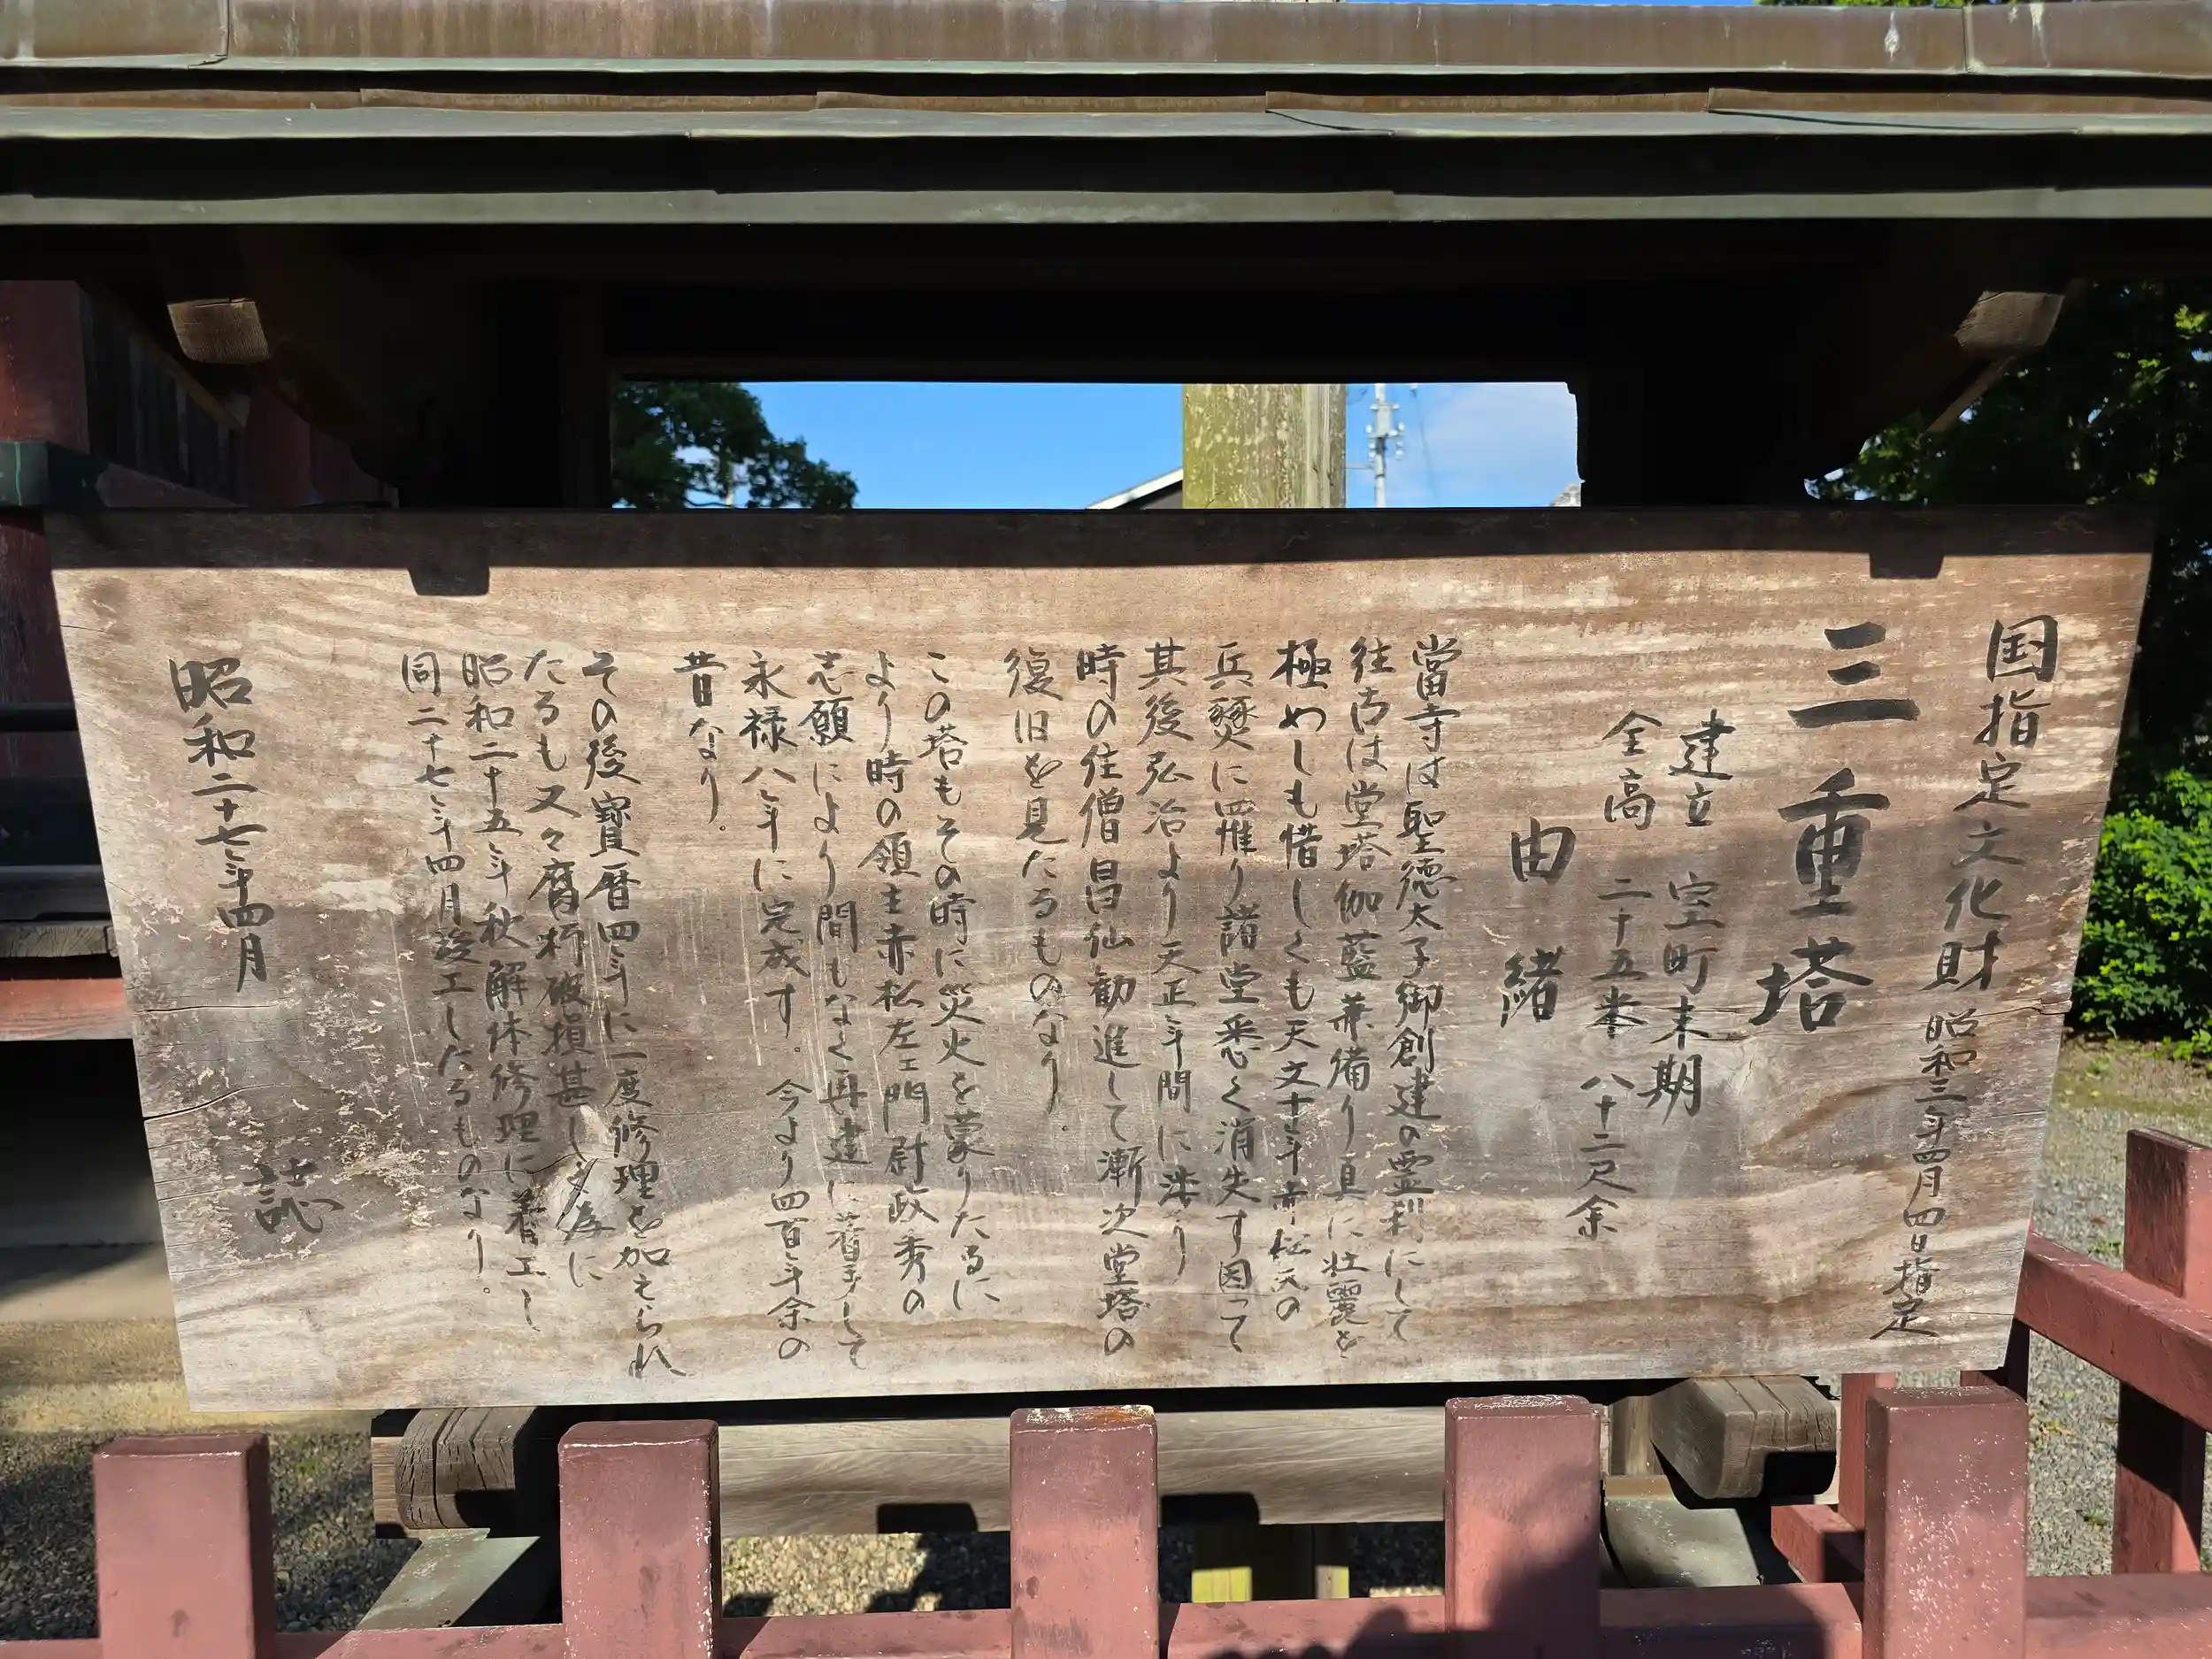 国指定文化財 昭和三年四月四日指定
三重塔
建立 室町末期
全高 二十五米 八十二尺余
由緒
當寺は聖徳太子御創建の霊刹にして
往古は堂塔伽藍兼備り具に壮麗を
極めしも惜しくも天文十年赤松氏の
兵燹に罹り諸堂悉く消失す因って
其後弘治より天正年間に渉り
時の住僧昌仙勧進して漸次堂塔の
復旧を見たるものなり。
この塔もその時に災火を蒙りたるに
より時の領主赤松左ェ門尉政秀の
志願により間もなく再建に着手して
永禄八年に完成す。今より四百年余の
昔なり。
その後寶暦四年に一度修理を加えられ
たるも又々腐朽破損甚しき為に
昭和二十五年秋解体修理に着工し
同二十七年四月竣工したるものなり。
昭和二十七年四月
誌